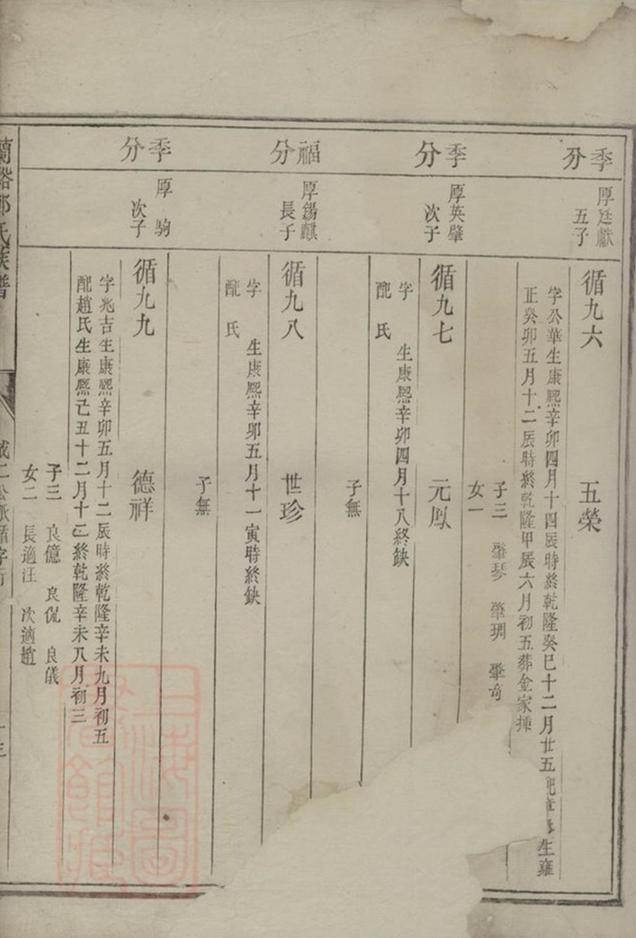 季分
厚廷獻
五子
循九六 五榮
字公華生康熙辛卯四月十四辰時終乾隆癸巳十二月廿五配 生雍
正癸卯五月十二辰時終乾隆甲辰六月初五葬金家
子三 肇琴 肇琱 肇
女一
季分
厚英肇
次子
循九七 元鳳
字 生康熙辛卯四月十八終缺
配 氏
子無
福分
厚錫麒
長子
循九八 世珍
字 生康熙辛卯五月十一寅時終缺
配 氏
子無
季分
厚 駒
次子
循九九 德祥
字兆吉生康熙辛卯五月十二辰時終乾隆辛未九月初五
配趙氏生康熙己丑十二月十 終乾隆辛未八月初三
子三 良億 良侃 良儀
女二 長適汪 次適趙
氏族譜
循字行